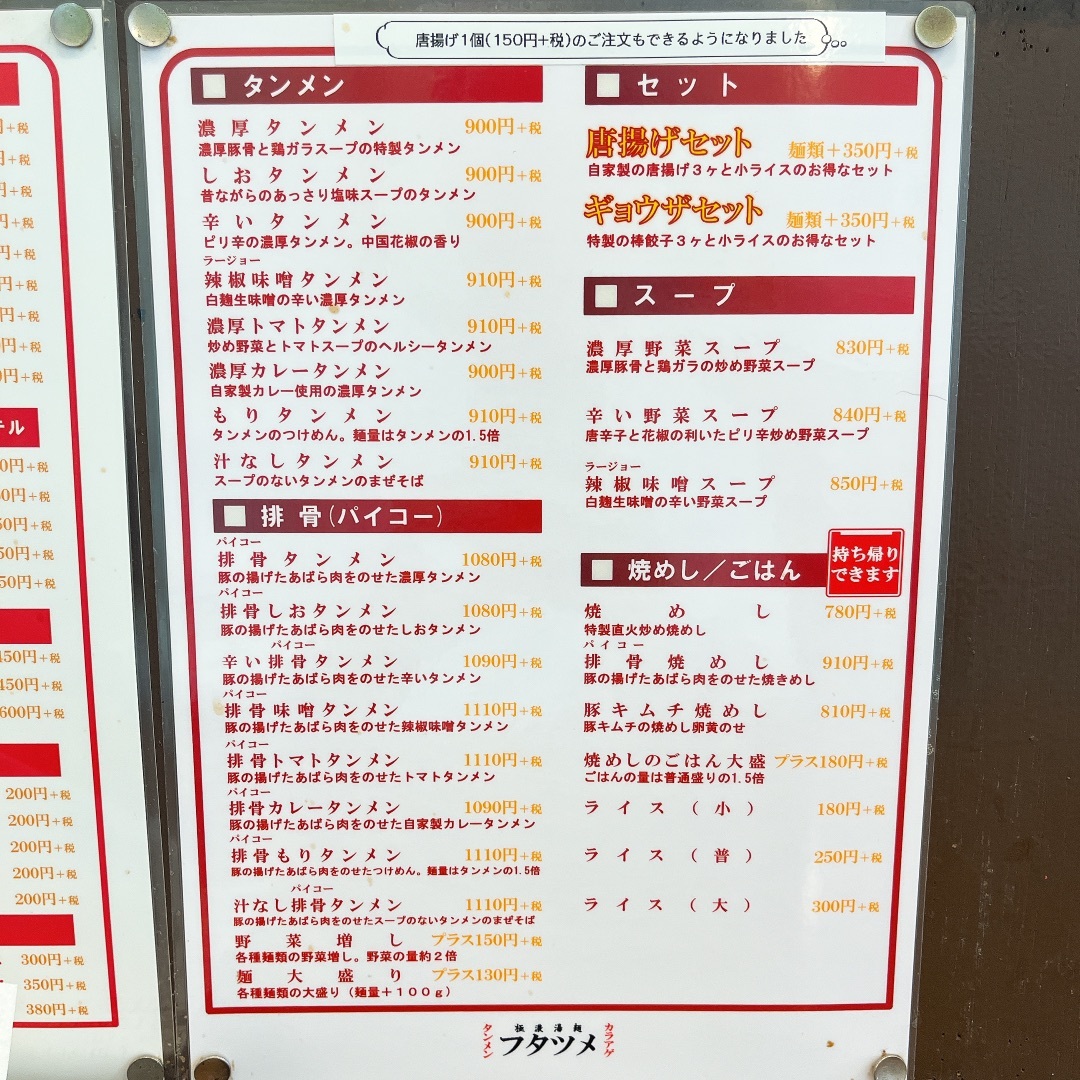 唐揚げ1個(150円+税)のご注文もできるようになりました
タンメン
濃厚タンメン 900円+税
濃厚豚骨と鶏ガラスープの特製タンメン
しおタンメン 900円+税
昔ながらのあっさり塩味スープのタンメン
辛いタンメン 900円+税
ピリ辛の濃厚タンメン。中国花椒の香り
ラージョー
辣椒味噌タンメン 910円+税
白麹生味噌の辛い濃厚タンメン
濃厚トマトタンメン 910円+税
炒め野菜とトマトスープのヘルシータンメン
濃厚カレータンメン 900円+税
自家製カレー使用の濃厚タンメン
もりタンメン 910円+税
タンメンのつけめん。麺量はタンメンの1.5倍
汁なしタンメン 910円+税
スープのないタンメンのまぜそば
排骨(パイコー)
パイコー
排骨タンメン 1080円+税
豚の揚げたあばら肉をのせた濃厚タンメン
パイコー
排骨しおタンメン 1080円+税
豚の揚げたあばら肉をのせたしおタンメン
パイコー
辛い排骨タンメン 1090円+税
豚の揚げたあばら肉をのせた辛いタンメン
パイコー
排骨味噌タンメン 1110円+税
豚の揚げたあばら肉をのせた辣椒味噌タンメン
パイコー
排骨トマトタンメン 1110円+税
豚の揚げたあばら肉をのせたトマトタンメン
パイコー
排骨カレータンメン 1090円+税
豚の揚げたあばら肉をのせた自家製カレータンメン
パイコー
排骨もりタンメン 1110円+税
豚の揚げたあばら肉をのせたつけめん。麺量はタンメンの1.5倍
パイコー
汁なし排骨タンメン 1110円+税
豚の揚げたあばら肉をのせたスープのないタンメンのまぜそば
野菜増し プラス150円+税
各種麺類の野菜増し。野菜の量約2倍
麺大盛り プラス130円+税
各種麺類の大盛り(麺量+100g)
セット
唐揚げセット 麺類+350円+税
自家製の唐揚げ3ヶと小ライスのお得なセット
ギョウザセット 麺類+350円+税
特製の棒餃子3ヶと小ライスのお得なセット
スープ
濃厚野菜スープ 830円+税
濃厚豚骨と鶏ガラの炒め野菜スープ
辛い野菜スープ 840円+税
唐辛子と花椒の利いたピリ辛炒め野菜スープ
ラージョー
辣椒味噌スープ 850円+税
白麹生味噌の辛い野菜スープ
焼めし/ごはん
持ち帰り
できます
焼めし 780円+税
特製直火炒め焼めし
パイコー
排骨焼めし 910円+税
豚の揚げたあばら肉をのせた焼きめし
豚キムチ焼めし 810円+税
豚キムチの焼めし卵黄のせ
焼めしのごはん大盛 プラス180円+税
ごはんの量は普通盛りの1.5倍
ライス(小) 180円+税
ライス(普) 250円+税
ライス(大) 300円+税
タンメン
極濃湯麺
フタツメ
カラアゲ
テル
450円+税
450円+税
600円+税
200円+税
200円+税
200円+税
200円+税
200円+税
300円+税
350円+税
380円+税